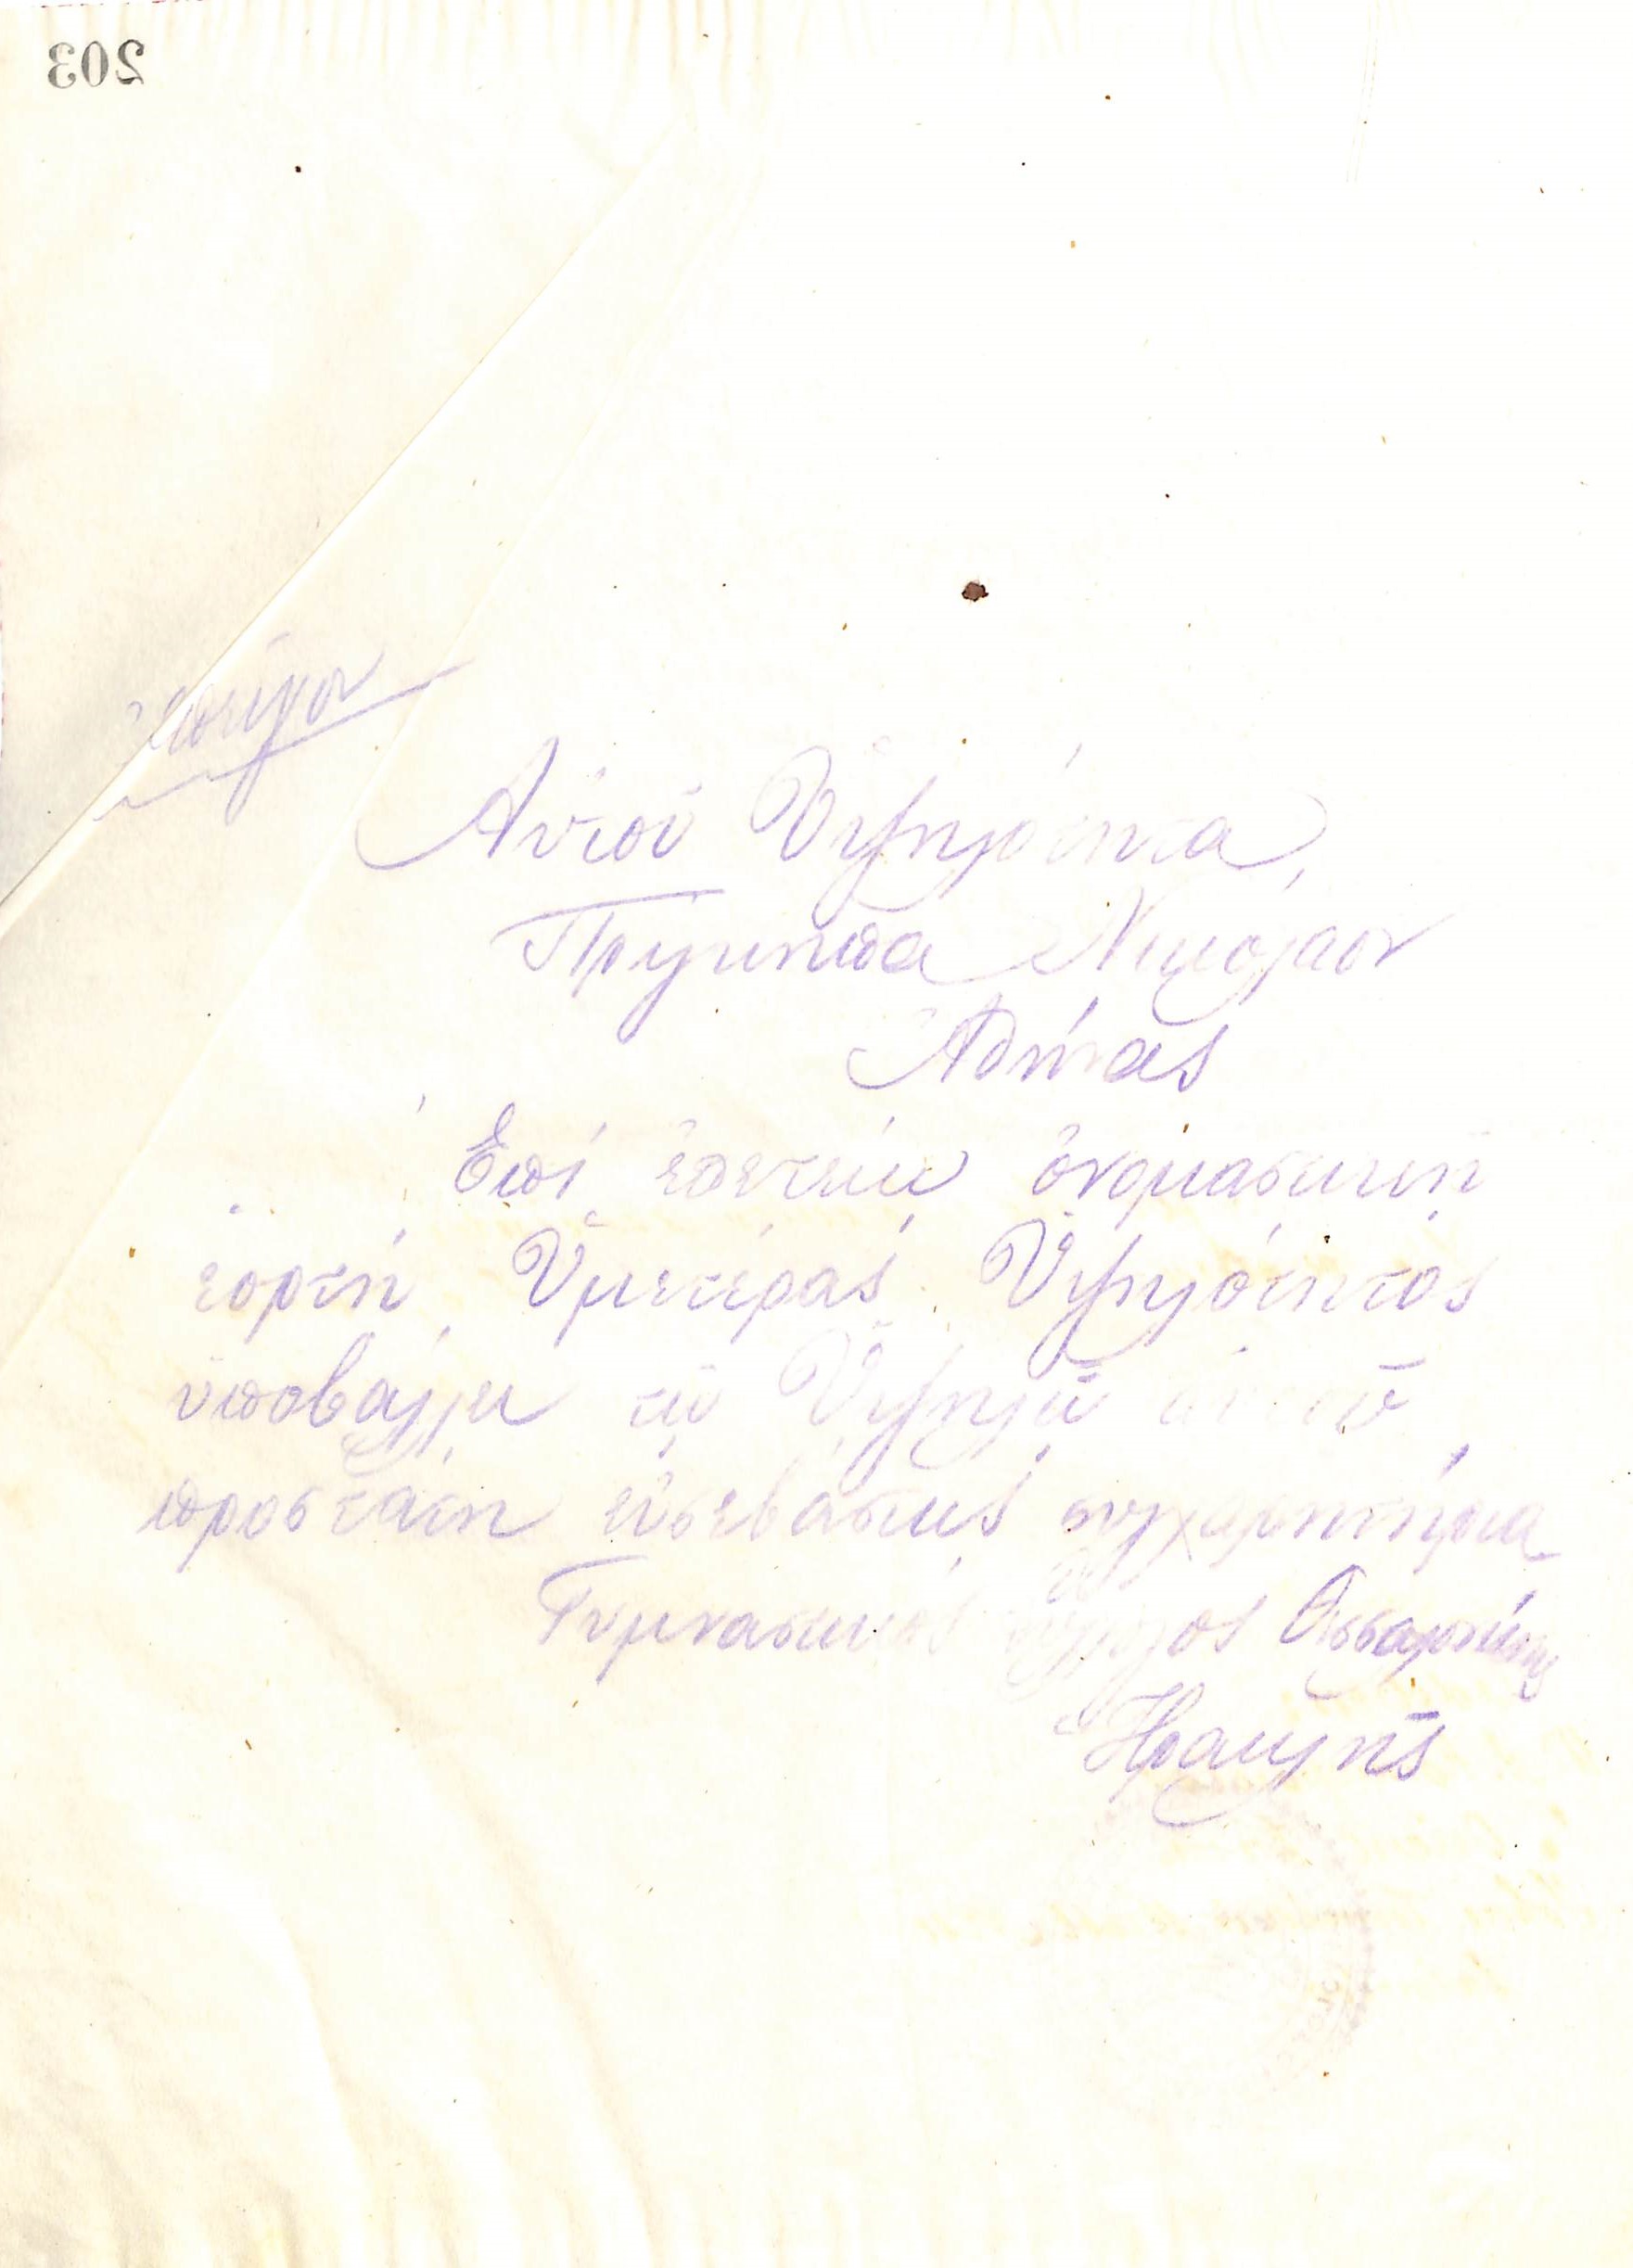 203
ἐπεῖγον
Αὐτοῦ Ὑψηλότητα,
Πρίγκηπα Νικόλαον
Ἀθήνας
Ἐπὶ ἐπετείῳ ὀνομαστικῇ
ἑορτῇ Ὑμετέρας Ὑψηλότητος
ὑποβάλλει τῷ Ὑψηλῷ αὐτοῦ
προστάτῃ εὐσεβάστως συγχαρητήρια
Γυμναστικὸς σύλλογος Θεσσαλονίκης
Ἡρακλῆς